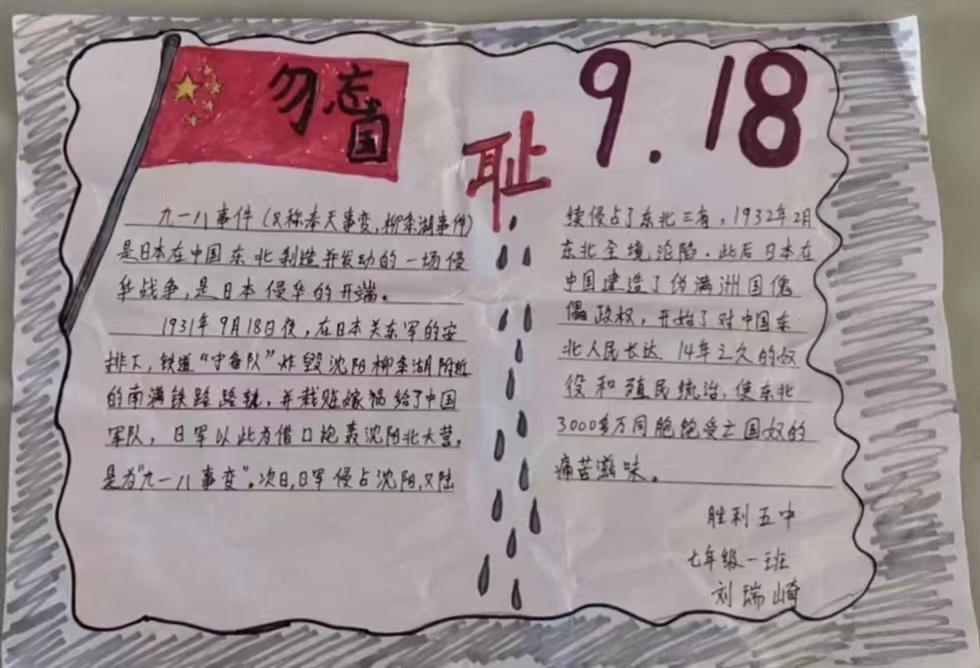 勿忘国
耻
9.18
九一八事件(又称奉天事变,柳条湖事件)
是日本在中国东北制造并发动的一场侵
华战争,是日本侵华的开端。
1931年9月18日夜,在日本关东军的安
排下,铁道“守备队”炸毁沈阳柳条湖附近
的南满铁路路轨,并栽赃嫁祸给了中国
军队,日军以此为借口炮轰沈阳北大营,
是为“九一八事变”。次日,日军侵占沈阳,又陆
续侵占了东北三省,1932年2月
东北全境沦陷。此后日本在
中国建造了伪满洲国傀
儡政权,开始了对中国东
北人民长达14年之久的奴
役和殖民统治,使东北
3000多万同胞饱受亡国奴的
痛苦滋味。
胜利五中
七年级一班
刘瑞崎